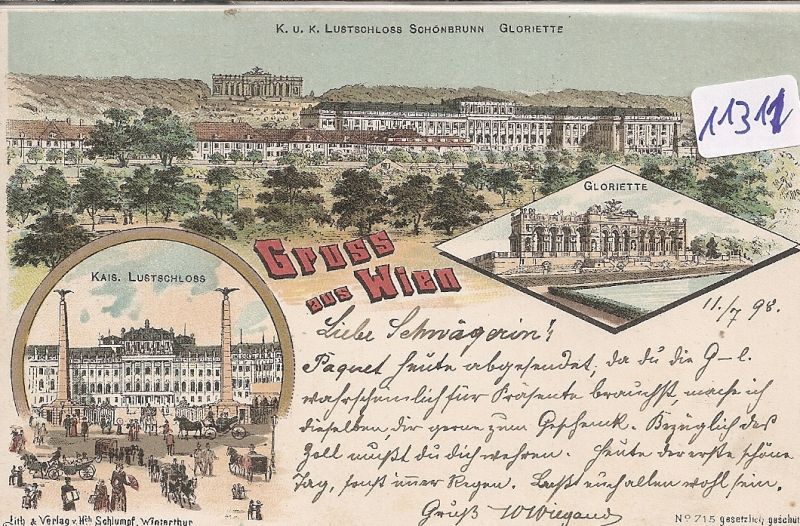 K. u. K. Lustschloss Schönbrunn Gloriette
11311
Gloriette
Kais. Lustschloss
Gruss
aus Wien
11./7 98.
Liebe Schwägerin!
Paquet heute abgesendet, da du die G-l.
wahrscheinlich für Präsente brauchst, mache ich
dieselben dir gerne zum Geschenk. Bezüglich des
Zoll mußt du dich wehren. Heute der erste schöne
Tag, sonst immer Regen. Laßt euch allen wohl sein.
Gruß WWiegand
Lith & Verlag v. Hch Schlumpf, Winterthur
No 715 gesetzlich geschüt